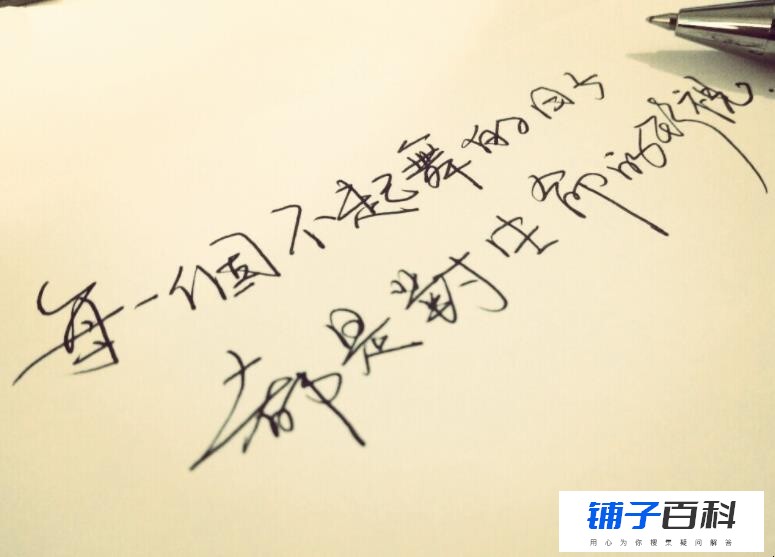 每一個不起舞的日子
都是對生命的視
铺子百科
用心为你搜疑问解答